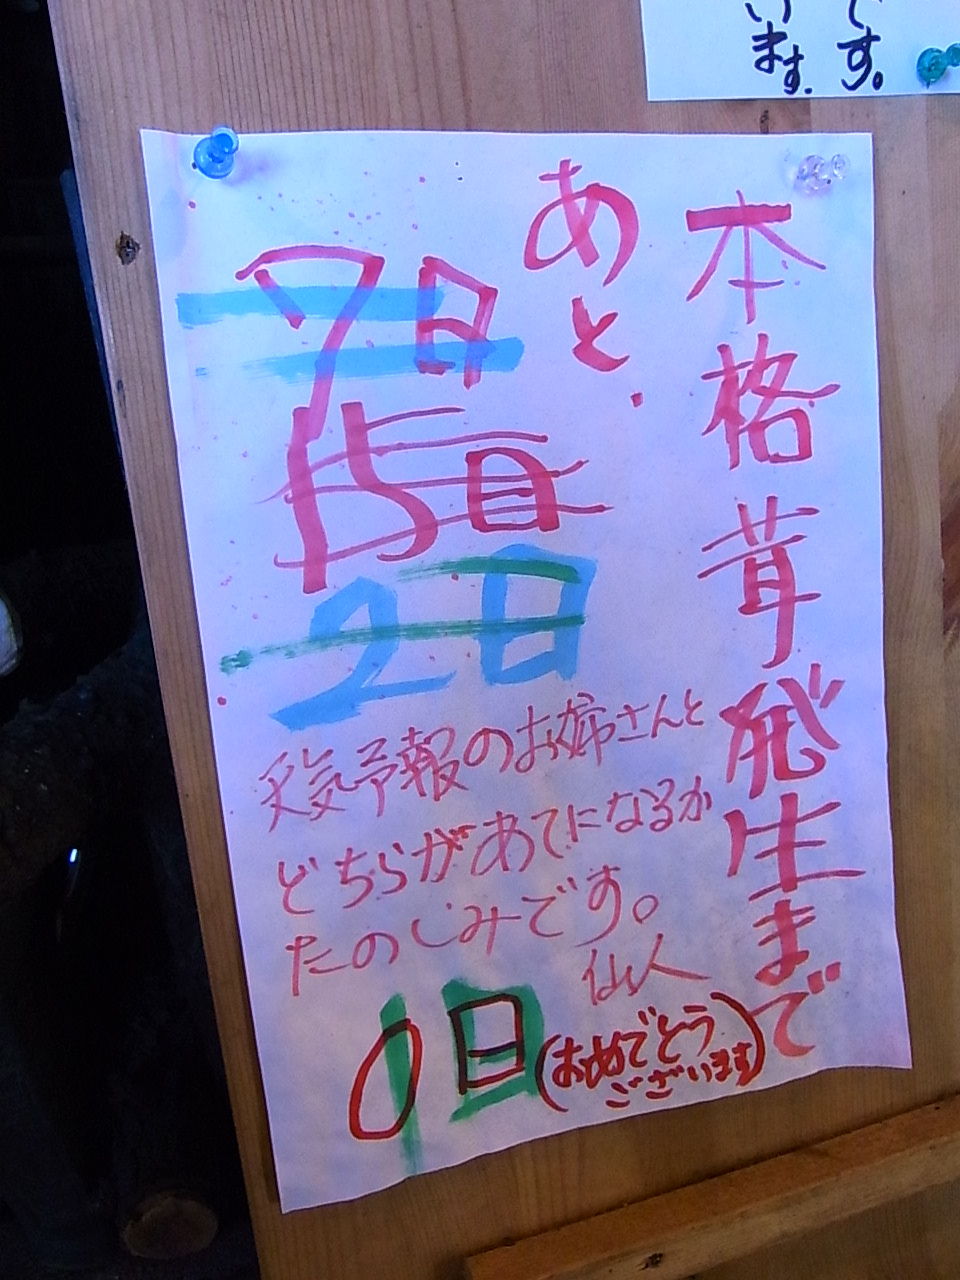 います。
です。
本格茸発生まで
あと、
7日
15日
2日
天気予報のお姉さんと
どちらがあてになるか
たのしみです。
仙人
0日(おめでとう
ございます)